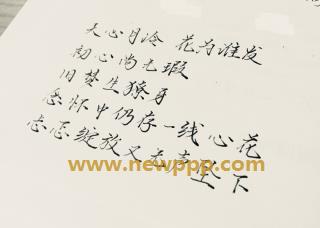 天心月冷 花为谁发
初心尚无瑕
旧梦生獠牙
怀中仍存一线心花
忐忑绽放又无声坠下
www.newppp.com